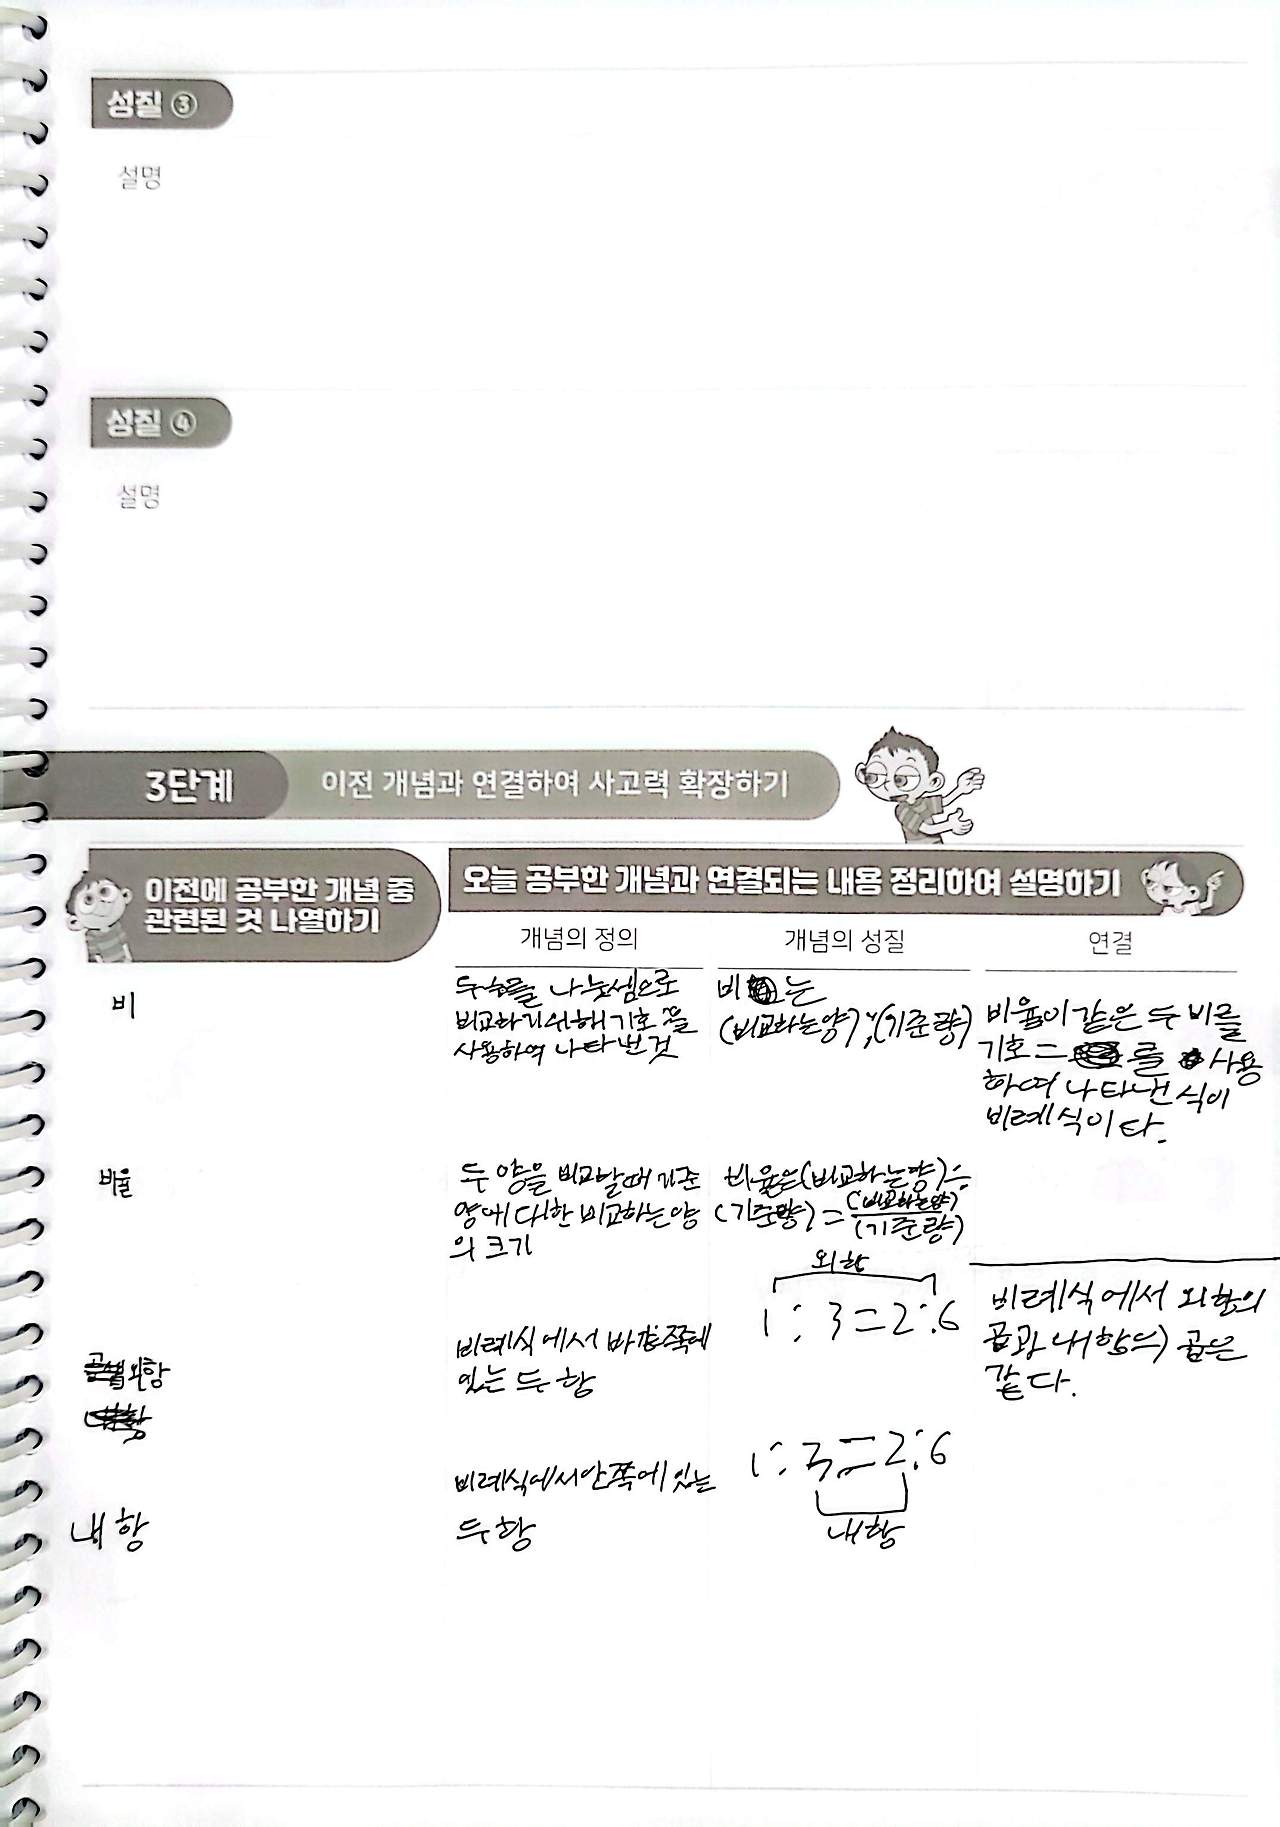 성질 ③
설명
성질 ④
설명
3단계 이전 개념과 연결하여 사고력 확장하기
이전에 공부한 개념 중
관련된 것 나열하기
오늘 공부한 개념과 연결되는 내용 정리하여 설명하기
개념의 정의
개념의 성질
연결
비
두 수를 나눗셈으로
비교하기 위해 기호 :을
사용하여 나타낸 것
비는
(비교하는양):(기준량)
비율이 같은 두 비를
기호 = 를 사용
하여 나타낸 식이
비례식이다.
비율
두 양을 비교할때 기준
양에 대한 비교하는양
의 크기
비율은(비교하는양)÷
(기준량)=(비교하는양)/(기준량)
외항
비례식에서 바깥쪽에
있는 두 항
외항
1:3=2:6
비례식에서 외항의
곱과 내항의 곱은
같다.
내항
비례식에서 안쪽에 있는
두항
1:3=2:6
내항